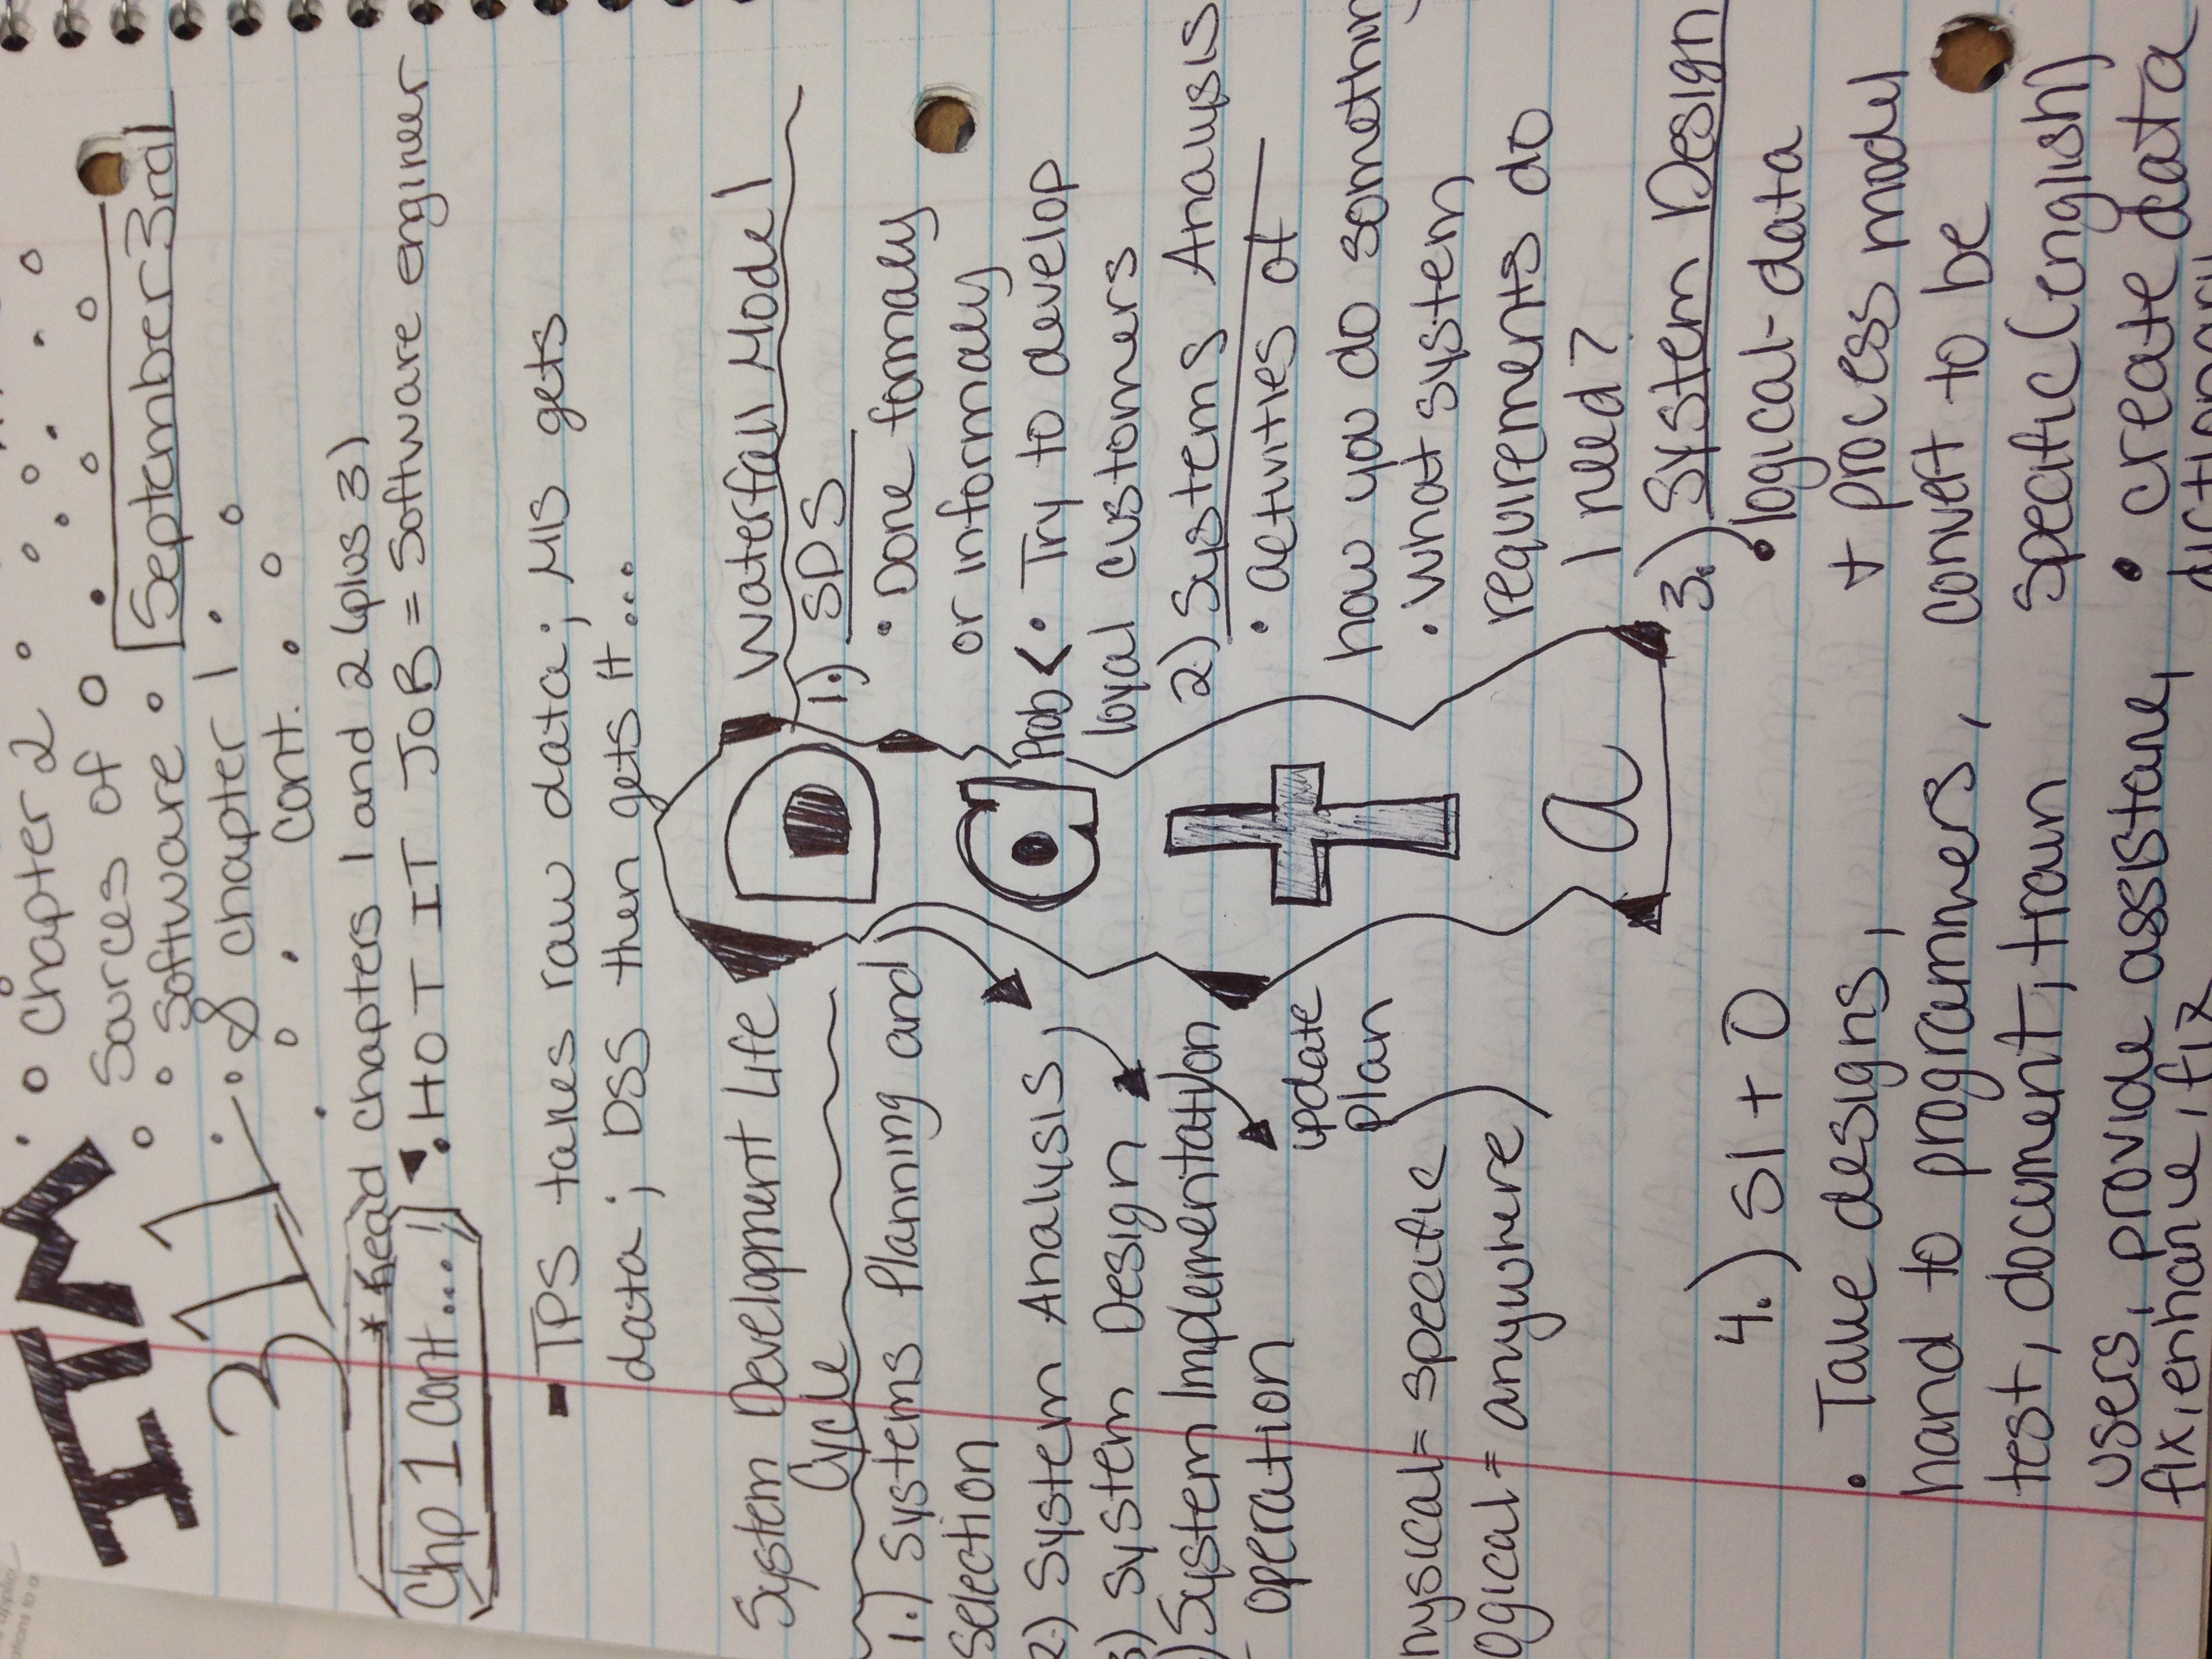 ITM
311
Chapter 2
Sources of
Software
& chapter 1
cont.
September 3rd
* Read chapters 1 and 2 (plus 3)
Chp 1 Cont...!
HOT IT JOB = Software engineer
- TPS takes raw data; MIS gets
data; DSS then gets it...
System Development Life
Cycle
1.) Systems Planning and
Selection
2.) System Analysis
3) System Design
) System Implementation
operation
update
plan
hysical = specific
ogical = anywhere
Data
Waterfall Model
1.) SDS
• Done formally
or informally
Prob < • Try to develop
loyal customers
2.) Systems Analysis
• activities of
how you do somethin
• What system
requirements do
I need?
3.) System Design
• logical - data
+ process model
convert to be
specific (english)
• create data
dictionary
4.) SI + O
• Take designs,
hand to programmers,
test, document, train
users, provide assistance,
fix, enhance, fix